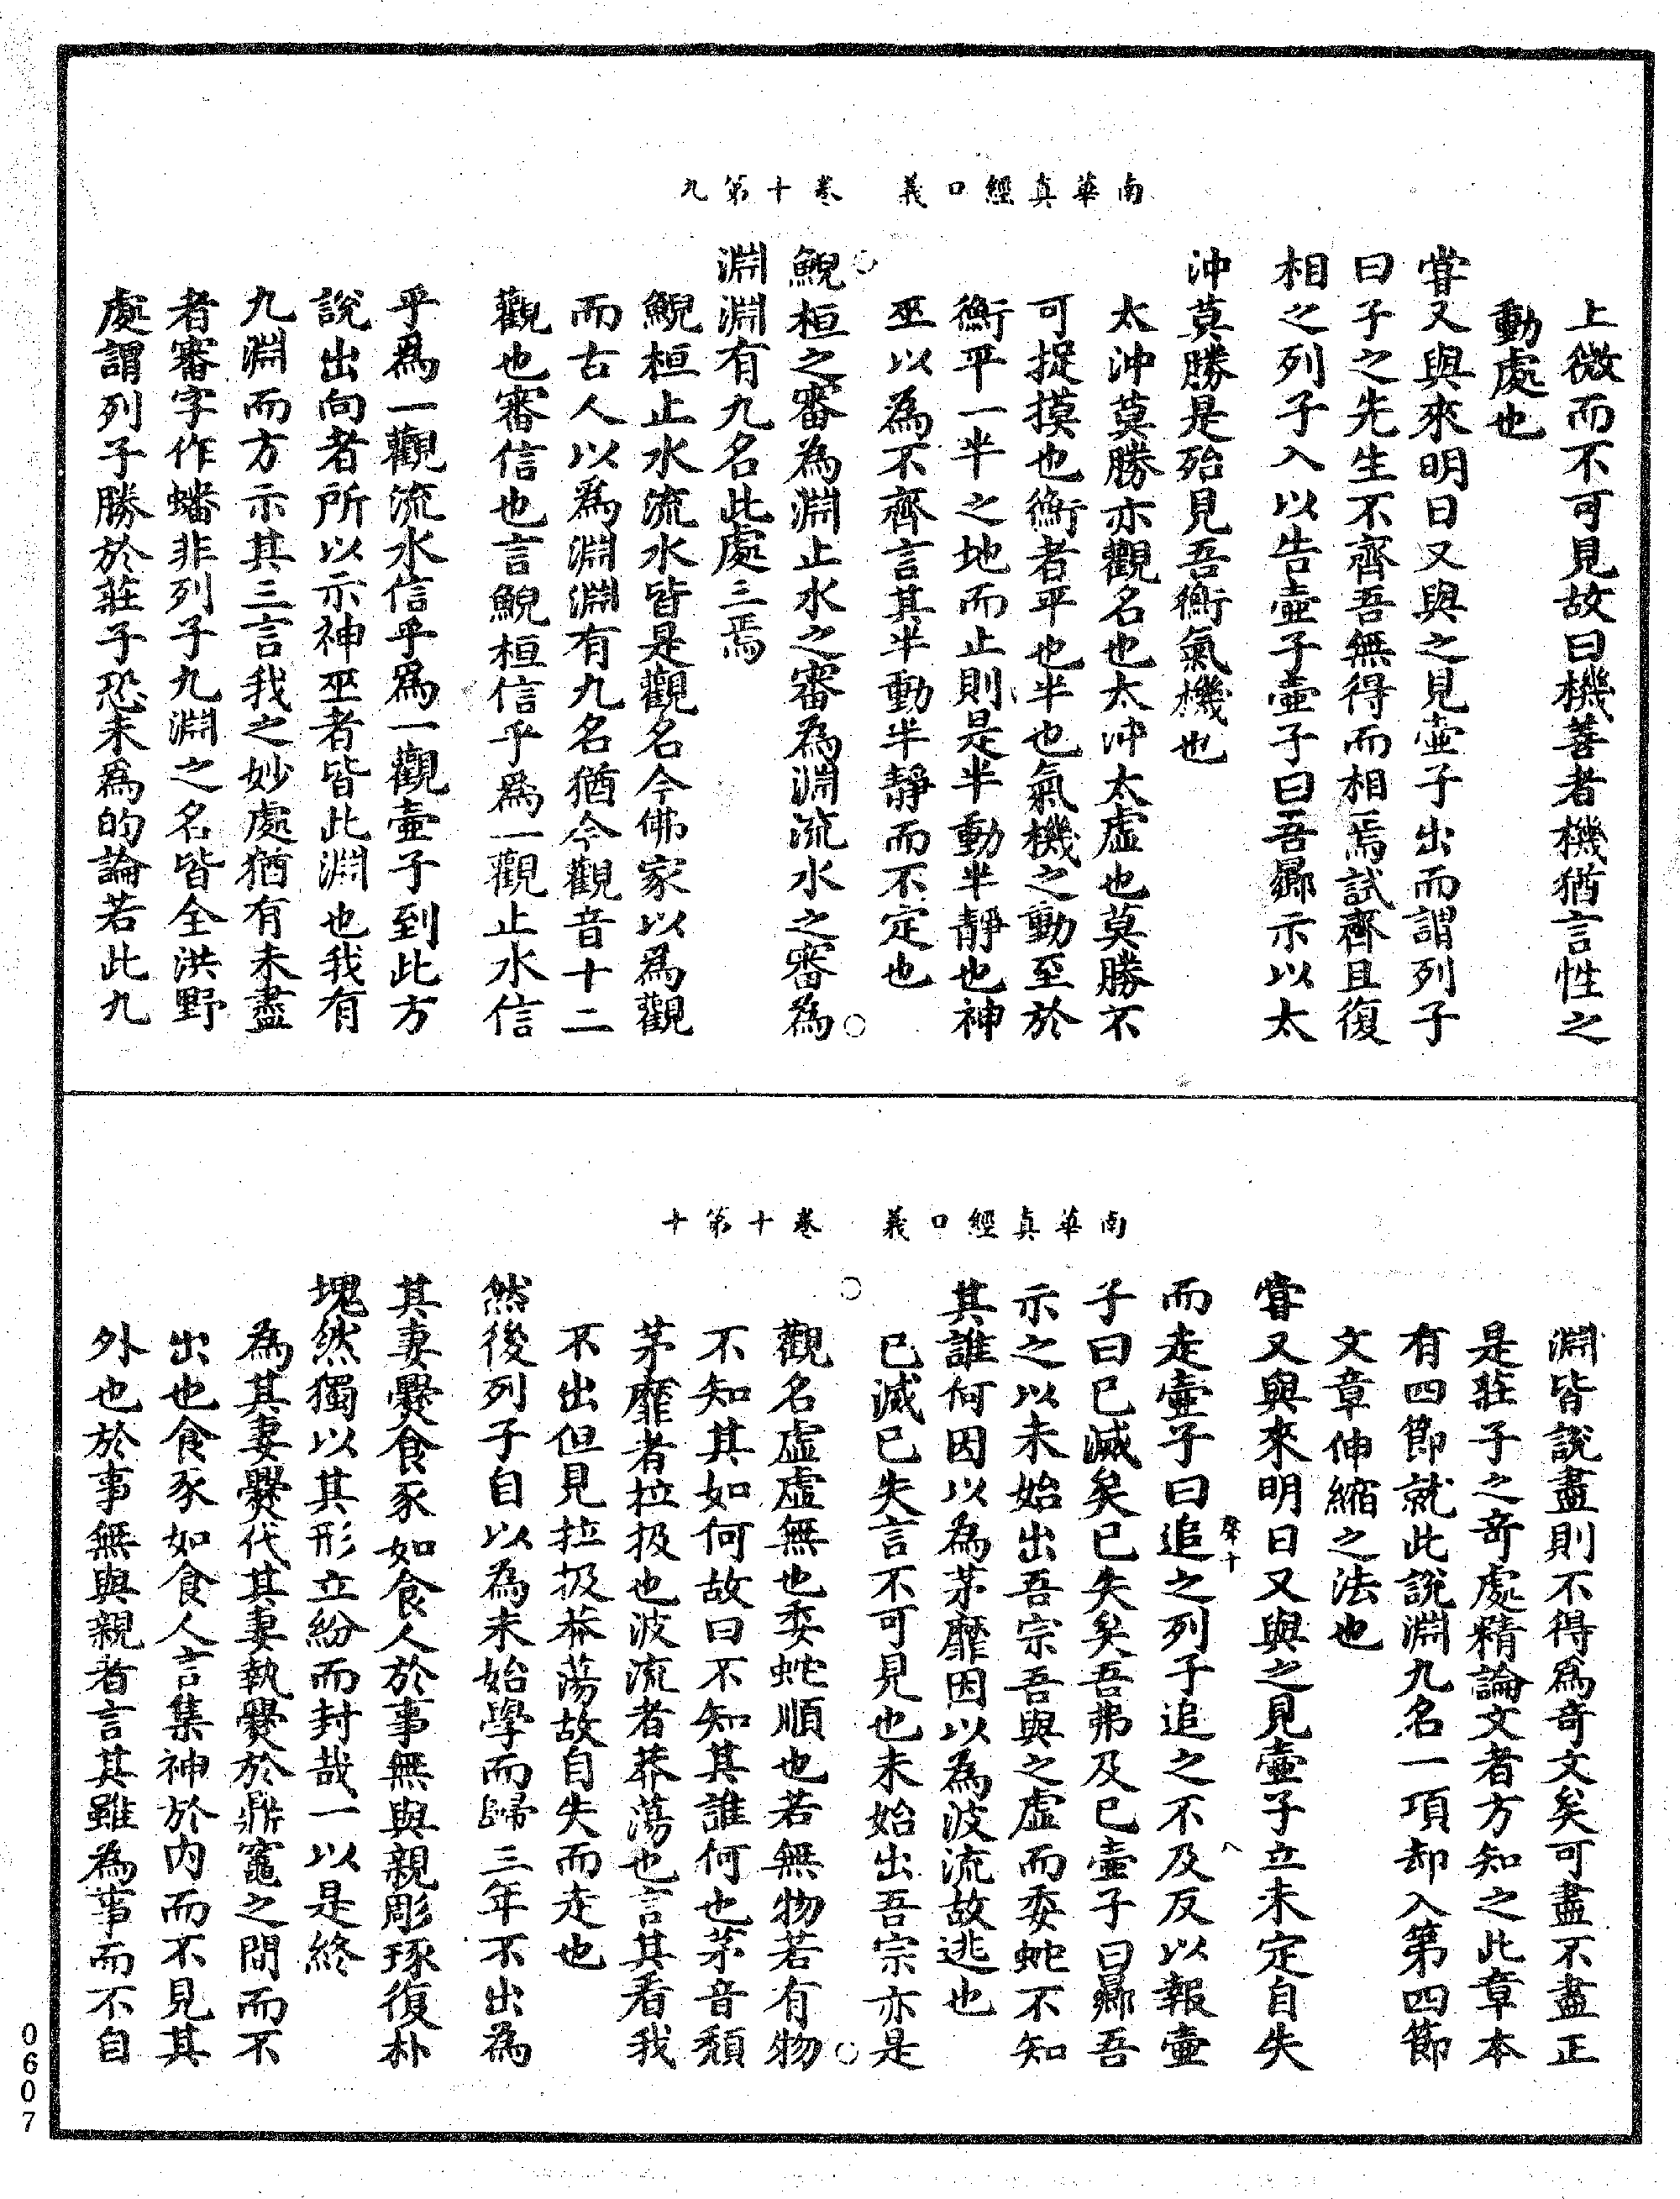 南華真經口義　卷十第九
上微而不可見故曰機善者機猶言性之
動處也
嘗又與來明日又與之見壺子出而謂列子
曰子之先生不齊吾無得而相焉試齊且復
相之列子入以告壺子壺子曰吾鄉示以太
沖莫勝是殆見吾衡氣機也
太沖莫勝亦觀名也太沖太虛也莫勝不
可捉摸也衡者平也半也氣機之動至於
衡平一半之地而止則是半動半靜也神
巫以為不齊言其半動半靜而不定也
鯢桓之審為淵止水之審為淵流水之審為
淵淵有九名此處三焉
鯢桓止水流水皆是觀名今佛家以爲觀
而古人以爲淵淵有九名猶今觀音十二
觀也審信也言鯢桓信乎爲一觀止水信
乎爲一觀流水信乎爲一觀壺子到此方
說出向者所以示神巫者皆此淵也我有
九淵而方示其三言我之妙處猶有未盡
者審字作蟠非列子九淵之名皆全洪野
處謂列子勝於莊子恐未爲的論若此九
南華真經口義　卷十第十
淵皆說盡則不得爲奇文矣可盡不盡正
是莊子之奇處精論文者方知之此章本
有四節就此說淵九名一項却入第四節
文章伸縮之法也
嘗又與來明日又與之見壺子立未定自失
而走壺子曰追之列子追之不及反以報壺
子曰已滅矣已失矣吾弗及已壺子曰鄉吾
示之以未始出吾宗吾與之虛而委蛇不知
其誰何因以為茅靡因以為波流故逃也
已滅已失言不可見也未始出吾宗亦是
觀名虛虛無也委蛇順也若無物若有物
不知其如何故曰不知其誰何也茅音頹
茅靡者拉扱也波流者莽蕩也言其看我
不出但見拉扱莽蕩故自失而走也
然後列子自以為未始學而歸三年不出為
其妻爨食豕如食人於事無與親彫琢復朴
塊然獨以其形立紛而封哉一以是終
為其妻爨代其妻執爨於鼎竈之間而不
出也食豕如食人言集神於内而不見其
外也於事無與親者言其雖為事而不自
0607